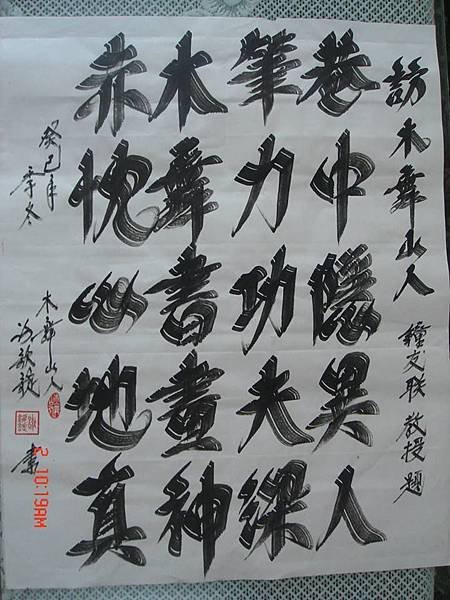 訪木舞山人 鐘文联 教授 题
巷中隱異人
筆力功夫
木舞書畫神
赤忱心地真
癸巳年
季冬
木舞山人
書
2 10:19AM